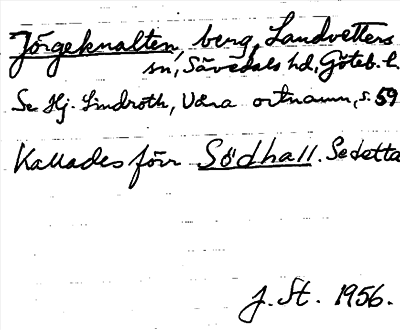 Jörgeknalten, berg, Landvetters
sn, Sävedals hd, Göteb. l.
Se Hj. Lindroth, Våra ortnamn, s. 59
Kallades förr Södhall. Se detta
J. St. 1956.